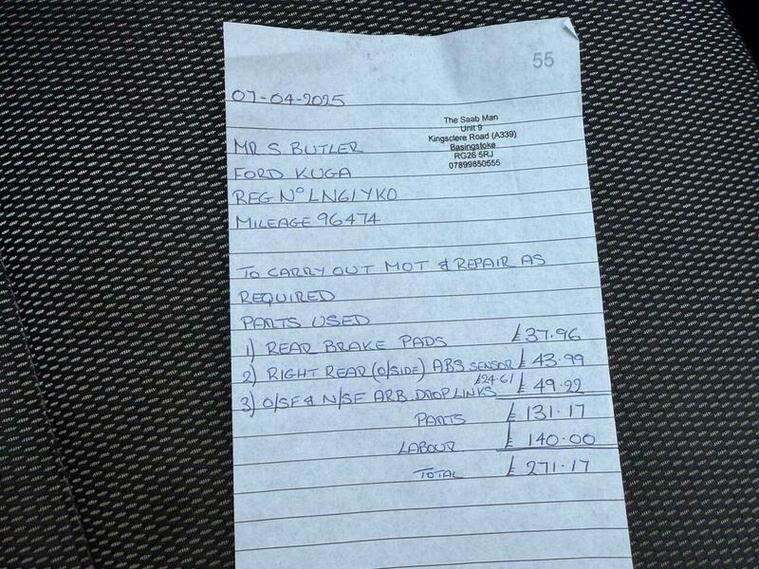 55
07-04-2025
The Saab Man
Unit 9
Kingsclere Road (A339)
Basingstoke
RG26 5RJ
07899850555
MR S. BUTLER
FORD KUGA
REG Nº LN61YKO
MILEAGE 96474
TO CARRY OUT MOT & REPAIR AS
REQUIRED
PARTS USED
1) REAR BRAKE PADS £37.96
2) RIGHT REAR (O/SIDE) ABS SENSOR £43.99
3) O/SF & N/SF ARB. DROP LINKS £24.61 £49.22
PARTS £131.17
LABOUR £140.00
TOTAL £271.17